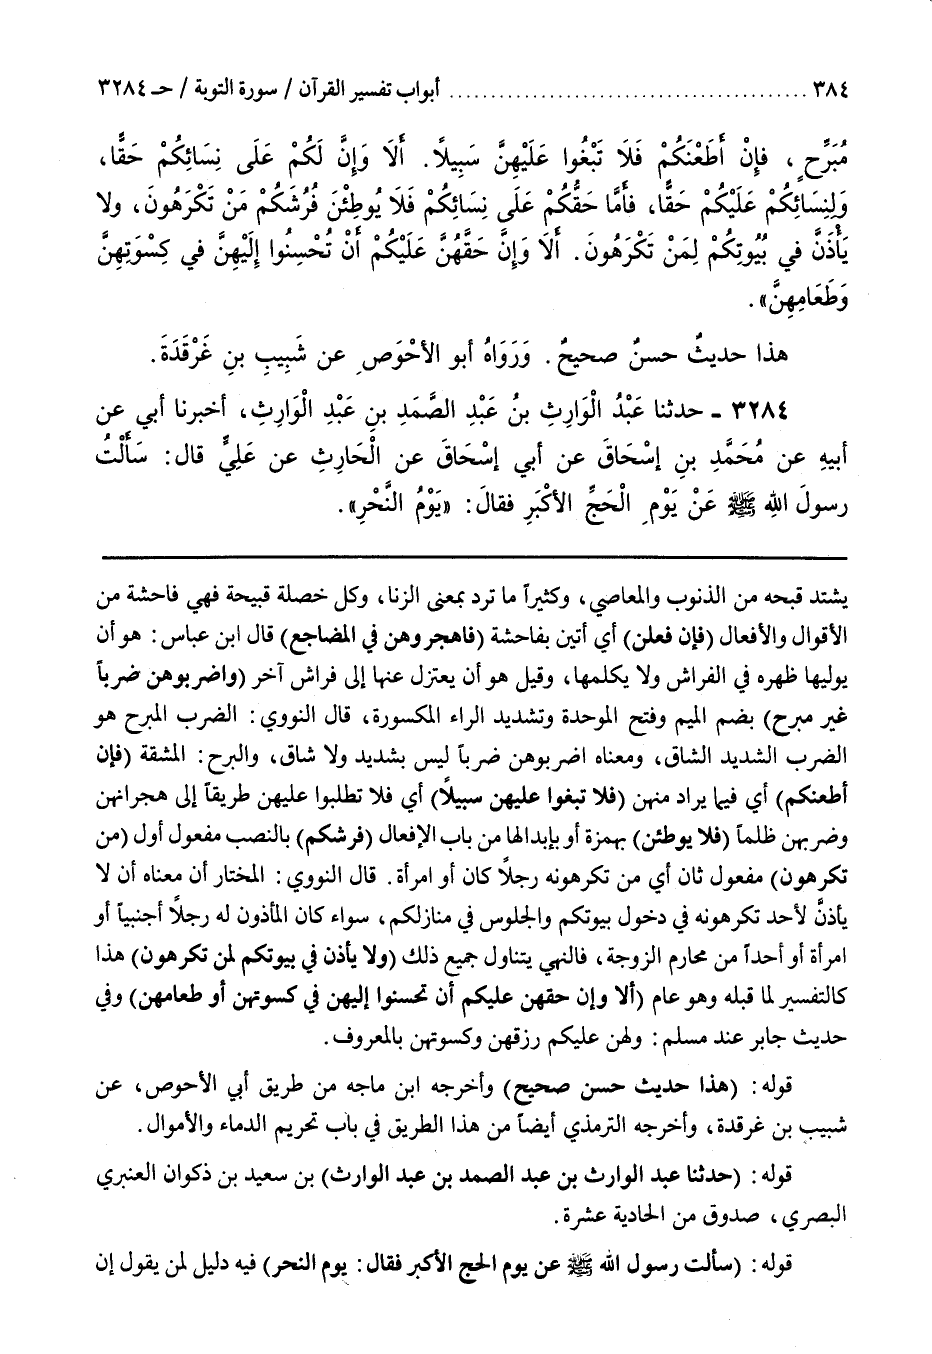 ٣٨٤ ........................................ أبواب تفسير القرآن / سورة التوبة / حـ ٣٢٨٤
مُبَرِّحٍ، فإِنْ أَطَعْنَكُمْ فَلَا تَبْغُوا عَلَيْهِنَّ سَبِيلًا. أَلَا وَإِنَّ لَكُمْ عَلَى نِسَائِكُمْ حَقًّا،
وَلِنِسَائِكُمْ عَلَيْكُمْ حَقًّا، فأَمَّا حَقُّكُمْ عَلَى نِسَائِكُمْ فَلَا يُوطِئْنَ فُرُشَكُمْ مَنْ تَكْرَهُونَ، ولا
يَأْذَنَّ في بُيُوتِكُمْ لِمَنْ تَكْرَهُونَ. أَلَا وَإِنَّ حَقَّهُنَّ عَلَيْكُمْ أَنْ تُحْسِنُوا إِلَيْهِنَّ في كِسْوَتِهِنَّ
وَطَعَامِهِنَّ».
هذا حديثٌ حسنٌ صحيحٌ. وَرَوَاهُ أبو الأحْوَصِ عن شَبِيبِ بنِ غَرْقَدَةَ.
٣٢٨٤ ـ حدثنا عَبْدُ الْوَارِثِ بنُ عَبْدِ الصَّمَدِ بنِ عَبْدِ الْوَارِثِ، أخبرنا أبي عن
أبيهِ عن مُحَمَّدِ بنِ إسْحَاقَ عن أبي إسْحَاقَ عن الْحَارِثِ عن عَلِيٍّ قال: سَأَلْتُ
رسولَ اللهِ ﷺ عَنْ يَوْمِ الْحَجِّ الأكْبَرِ فقالَ: «يَوْمُ النَّحْرِ».
يشتد قبحه من الذنوب والمعاصي، وكثيراً ما ترد بمعنى الزنا، وكل خصلة قبيحة فهي فاحشة من
الأقوال والأفعال (فإن فعلن) أي أتين بفاحشة (فاهجروهن في المضاجع) قال ابن عباس: هو أن
يوليها ظهره في الفراش ولا يكلمها، وقيل هو أن يعتزل عنها إلى فراش آخر (واضربوهن ضرباً
غير مبرح) بضم الميم وفتح الموحدة وتشديد الراء المكسورة، قال النووي: الضرب المبرح هو
الضرب الشديد الشاق، ومعناه اضربوهن ضرباً ليس بشديد ولا شاق، والبرح: المشقة (فإن
أطعنكم) أي فيما يراد منهن (فلا تبغوا عليهن سبيلاً) أي فلا تطلبوا عليهن طريقاً إلى هجرانهن
وضربهن ظلماً (فلا يوطئن) بهمزة أو بإبدالها من باب الإفعال (فرشكم) بالنصب مفعول أول (من
تكرهون) مفعول ثان أي من تكرهونه رجلاً كان أو امرأة. قال النووي: المختار أن معناه أن لا
يأذنَّ لأحد تكرهونه في دخول بيوتكم والجلوس في منازلكم، سواء كان المأذون له رجلاً أجنبياً أو
امرأة أو أحداً من محارم الزوجة، فالنهي يتناول جميع ذلك (ولا يأذن في بيوتكم لمن تكرهون) هذا
كالتفسير لما قبله وهو عام (ألا وإن حقهن عليكم أن تحسنوا إليهن في كسوتهن أو طعامهن) وفي
حديث جابر عند مسلم: ولهن عليكم رزقهن وكسوتهن بالمعروف.
قوله: (هذا حديث حسن صحيح) وأخرجه ابن ماجه من طريق أبي الأحوص، عن
شبيب بن غرقدة، وأخرجه الترمذي أيضاً من هذا الطريق في باب تحريم الدماء والأموال.
قوله: (حدثنا عبد الوارث بن عبد الصمد بن عبد الوارث) بن سعيد بن ذكوان العنبري
البصري، صدوق من الحادية عشرة.
قوله: (سألت رسول الله ﷺ عن يوم الحج الأكبر فقال: يوم النحر) فيه دليل لمن يقول إن